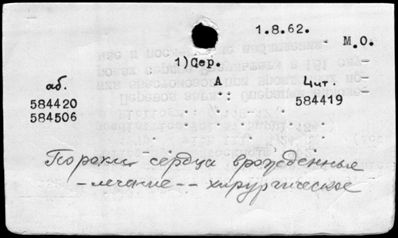 1.8.62.
- М.О.
1)Сер.
аб. А Чит.
584420 584419
584506
Пороки сердца врожденные
- лечение -- хирургическое